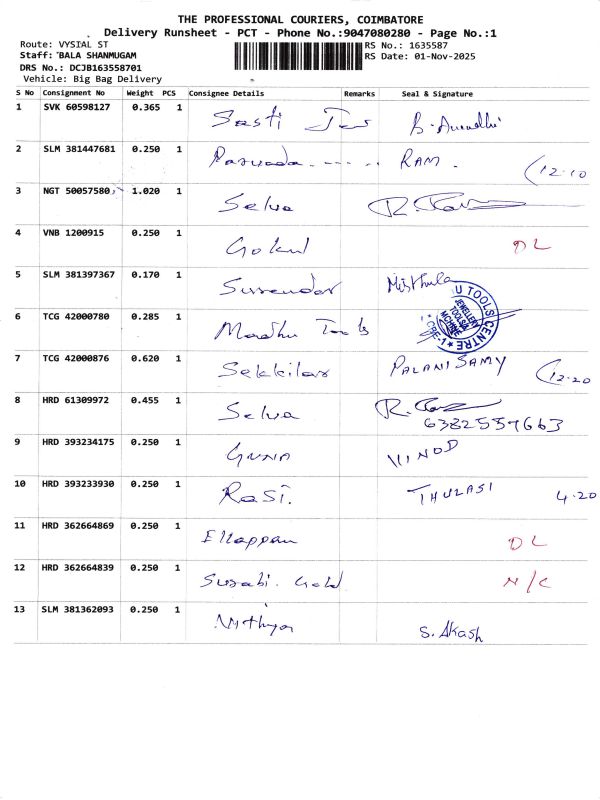 THE PROFESSIONAL COURIERS, COIMBATORE
Delivery Runsheet - PCT - Phone No.:9047080280 - Page No.:1
Route: VYSIAL ST RS No.: 1635587
Staff: BALA SHANMUGAM RS Date: 01-Nov-2025
DRS No.: DCJB163558701
Vehicle: Big Bag Delivery
S No Consignment No Weight PCS Consignee Details Remarks Seal & Signature
1 SVK 60598127 0.365 1 Sasti
2 SLM 381447681 0.250 1 RAM. 12.10
3 NGT 50057580 1.020 1 Selva
4 VNB 1200915 0.250 1 Gokul DL
5 SLM 381397367 0.170 1 Surrendar Misthula
6 TCG 42000780 0.285 1 Madhu Tools U TOOLS CENTRE JEWELLERY TOOLS & CBE-1
7 TCG 42000876 0.620 1 Sekkilar PALANISAMY 12.20
8 HRD 61309972 0.455 1 Selva
6382559663
9 HRD 393234175 0.250 1 GUNA VINOD
10 HRD 393233930 0.250 1 Rasi. THULASI 4.20
11 HRD 362664869 0.250 1 Ellappan DL
12 HRD 362664839 0.250 1 Surabi Gold N/C
13 SLM 381362093 0.250 1 Nithya S. Akash